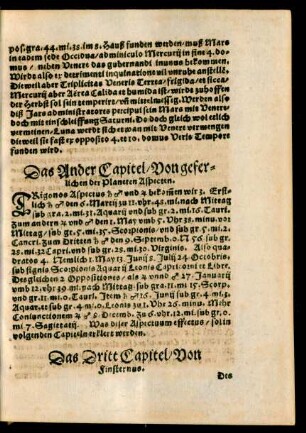 pos. gra. 44. mi. 35. im 8. Hauß funden werden, muß Mars
in eadem sede Occidua, adminiculo Mercurij in fine 4. do-
mus, neben Venere das gubernandt innuus bekommen.
Wirde also ex detrimenti inquilinatu vil unruhe anstellē.
Dieweil aber Triplicitas Veneris Terrea, frigida, et sicca,
Mercurij aber Aërea Calida et humida ist, wirdt zuhoffen
der Herbst sol sein temperirt, oder mittelmässig. Werden also
diß Jars administratores precipui sein Mars mit Venere,
doch mit einschliessung Saturni. Do doch gleich wol etlich
vermeinen, Luna werde sich etwas mit Venere vermengen
dieweil sie fast ex opposito 4. et 10. domus Veris Tempore
funden wird.
Das Ander Capitel, Von gefer-
lichen der Planeten Aspecten.
TRigonos Aspectus ♄ ♂ und ♃ bekommen wir 3. Erst-
lich ♄ ♂ den 6. Martij zu 11. vhr 48. mi. nach Mittag
sub gra. 2. mi. 31. Aquarij und sub gr. 2. mi. 16. Tauri.
Zum andern ♃ und ♂ den 1. May umb 5. Vhr 38. minu. vor
Mittag, sub gr. 5. mi. 35. Scorpionis, und sub gr. 5. mi. 2.
Cancri. Zum Dritten ♄ ♂ den 9. Septemb. O. N 56 sub gr.
25. mi. 32 Capri. und sub gr. 28. mi. 30. Virginis. Also qua-
dratos 4. Nemlich 1. May 13. Junij 8. Julij 24. Octobris.
sub signis Scorpionis Aquarij Leonis Capricorni et Libre.
Desgleichen 2 Oppositiones, als ♃ vnnd ♂ 27. Januarij
umb 12. vhr 39. mi. nach Mittag, sub gra. 11. mi. 15. Scorp.
und gr. 11. mi. 0. Tauri. Item ♄ ♂ 16. Junij sub gr. 4. mi. 4
Aquar. et sub gr. 4. mi 0. Leonis zu 1. Vhr 26. minu. Mehr
Coniunctionem ♃ ♂ 8. Decemb. Zu 6. vhr. 12. mi. sub gr. 0
mi. 7. Sagietarij. Was diser Aspectuum effectus, sol in
volgenden Capiteln erklert werden.
Das Dritt Capitel, Von
Finsternus.
Des